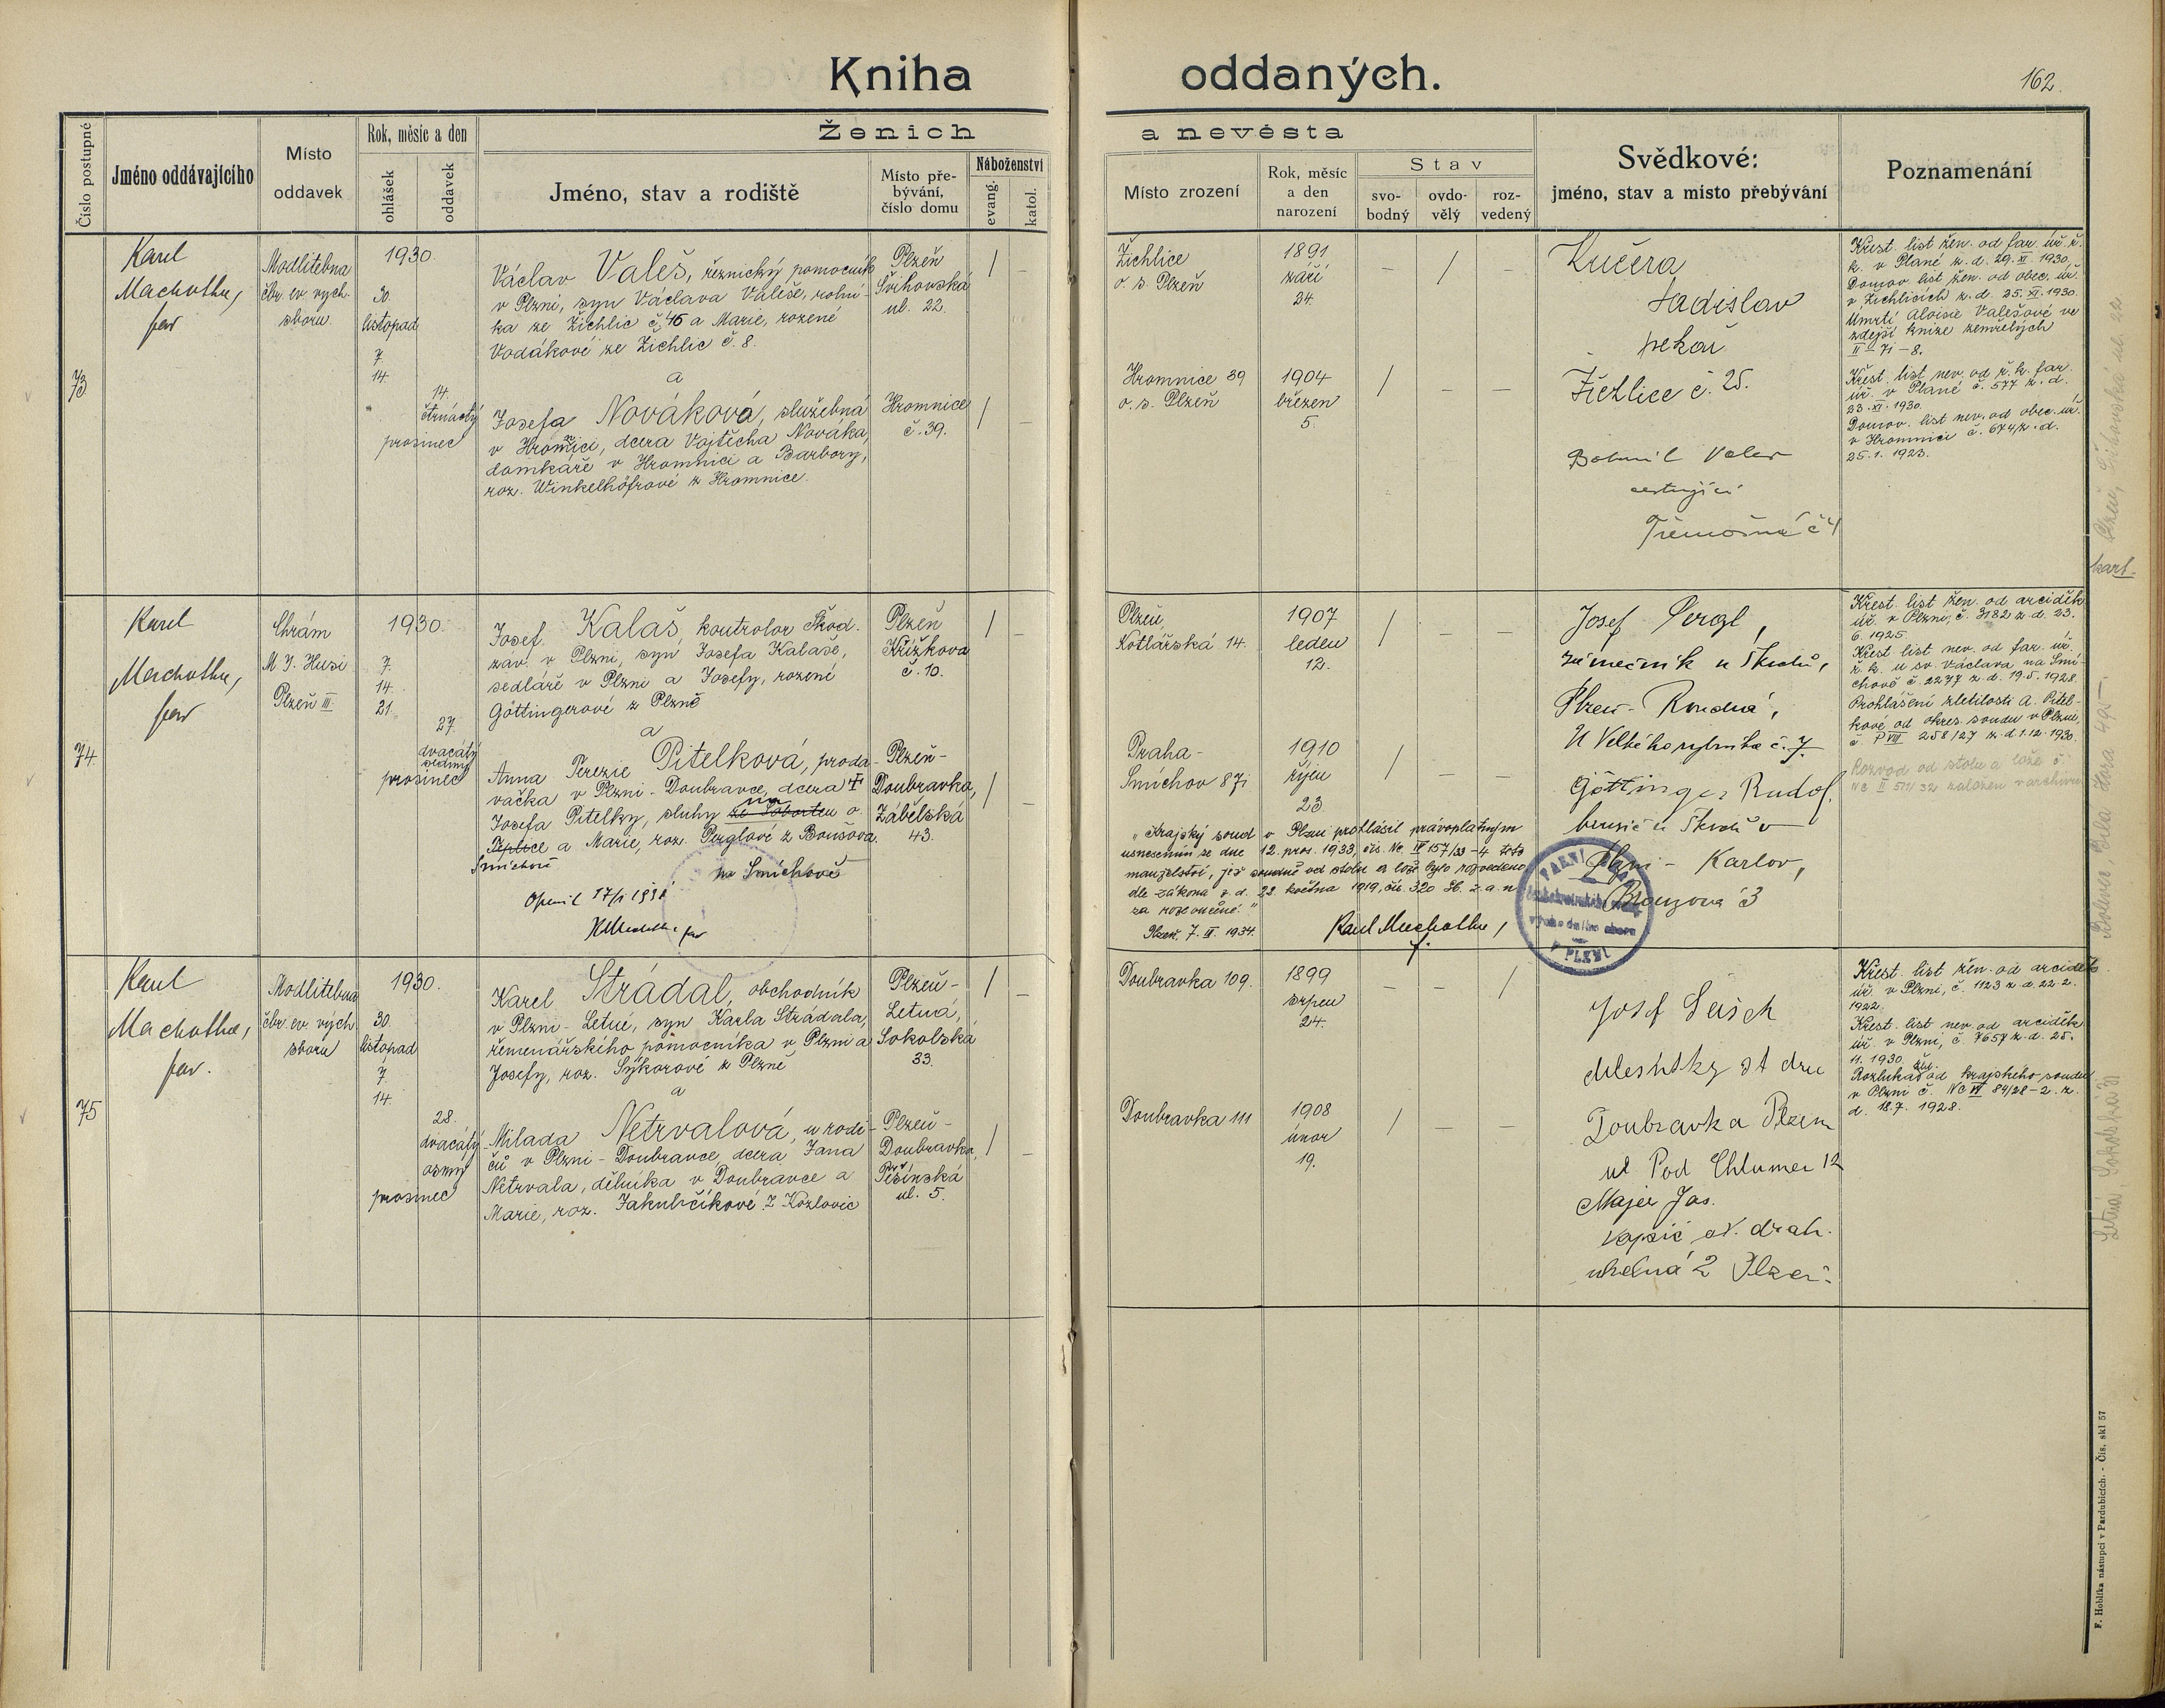 Kniha oddaných.
162.
Číslo postupné
Jméno oddávajícího
Místo oddavek
Rok, měsíc a den
ohlášek
oddavek
Ženich a nevěsta
Jméno, stav a rodiště
Místo pře-
bývání,
číslo domu
Náboženství
evang.
katol.
Místo zrození
Rok, měsíc
a den
narození
Stav
svo-
bodný
ovdo-
vělý
roz-
vedený
Svědkové:
jméno, stav a místo přebývání
Poznamenání
73
Karel
Machotka,
far
Modlitebna
čbr. ev. vych.
sboru
1930.
30.
listopad
7.
14.
14.
čtrnáctý
prosinec
Václav Valeš, řeznický pomocník
v Plzni, syn Václava Valeše, rolní-
ka ze Žichlic č. 46 a Marie, rozené
Vodákové ze Žichlic č. 8.
a
Josefa Nováková, služebná
v Hromnici, dcera Vojtěcha Nováka,
domkáře v Hromnici a Barbory,
roz. Winkelhöfrové z Hromnice.
Plzeň
Švihovská
ul. 22.
Hromnice
č. 39.
Žichlice
o. s. Plzeň
1891
září
24.
Hromnice 39
o. s. Plzeň
1904
březen
5.
Kučera
Ladislav
pekař
Žichlice č. 25.
Bohumil Valeš
cestující
Třemošná č 4
Křest. list žen. od far. úř. ř.
k. v Plané z. d. 29. XI. 1930.
Domov. list žen. od obec. úř.
v Žichlicích z. d. 25. XI. 1930.
Úmrtí Aloisie Valešové ve
zdejší knize zemřelých
II - 71 - 8.
Křest. list nev. od ř. k. far.
úř. v Plané č. 577 z. d.
23. XI. 1930.
Domov. list nev. od obec. úř.
v Hromnici č. 674/z. d.
25. 1. 1923.
Plzeň, Švihovská ul. 22
kart.
74
Karel
Machotka,
far
Chrám
M J. Husi
Plzeň III.
1930.
7.
14.
21.
27.
dvacátý
sedmý
prosinec
Josef Kalaš, kontrolor Škod.
záv. v Plzni, syn Josefa Kalaše,
sedláře v Plzni a Josefy, rozené
Göttingerové z Plzně
a
Anna Terezie Pitelková, proda-
vačka v Plzni - Doubravce, dcera †
Josefa Pitelky, sluhy
a Marie, roz. Perglové z Boušova.
Smíchově
na Smíchově
Plzeň
Křížkova
č. 10.
Plzeň-
Doubravka,
Zábělská
43.
Plzeň,
Kotlářská 14.
1907
leden
12.
Praha-
Smíchov 871
1910
říjen
23
Josef Pergl,
zámečník u Škodů,
Plzeň - Roudná,
U Velkého rybníka č. 7
Göttinger Rudolf
brusič u Škodů v
Plzni - Karlov,
Křest. list žen. od arciděk.
úř. v Plzni, č. 3182 z. d. 23.
6. 1925.
Křest. list nev. od far. úř.
ř. k. u sv. Václava na Smí-
chově č. 2277 z d. 19.5. 1928.
Prohlášení zletilosti A. Pitel-
kové, od okres. soudu v Plzni,
č. P VIII 258/27 z. d 1. 12. 1930.
Rozvod od stolu a lože č.
založen v archivu
„Krajský soud v Plzni prohlásil právoplatným
usnesením ze dne 12. pros. 1933, čís. Nc IV 157/33-4 toto
manželství, jež soudně od stolu a lože bylo rozvedeno
dle zákona z d. 22. května 1919, čís. 320 Sb. z. a n.
za rozloučené."
Plzeň, 7. III. 1934.
Karel Machotka,
f.
V PLZNI
75
Karel
Machotka,
far.
Modlitebna
čbr. ev. vých
sboru
1930.
30.
listopad
7.
14.
28.
dvacátý
osmý
prosinec
Karel Strádal, obchodník
v Plzni - Letné, syn Karla Strádala,
řemenářského pomocníka v Plzni a
Josefy, roz. Sýkorové z Plzně
a
Milada Netrvalová, u rodi-
čů v Plzni - Doubravce, dcera Jana
Netrvala, dělníka v Doubravce a
Marie, roz. Jakubčíkové z Kozlovic
Plzeň-
Letná,
Sokolská
33.
Plzeň-
Doubravka,
ul. 5.
Doubravka 109.
1899
srpen
24.
Doubravka 111
1908
únor
19.
Josef
Doubravka Plzeň
ul Pod Chlumem 12
Majer Jos.
2 Plzeň.
Křest. list žen. od arciděk.
úř. v Plzni, č. 1123 z d. 22. 2.
1922.
Křest. list nev. od arciděk.
úř. v Plzni, č. 7657 z. d. 25.
11. 1930.
Rozluka žen. od krajského soudu
v Plzni č. Nc VI 84/28-2. z.
d. 18. 7. 1928.
F. Hoblíka nástupci v Pardubicích. - Čís. skl 57